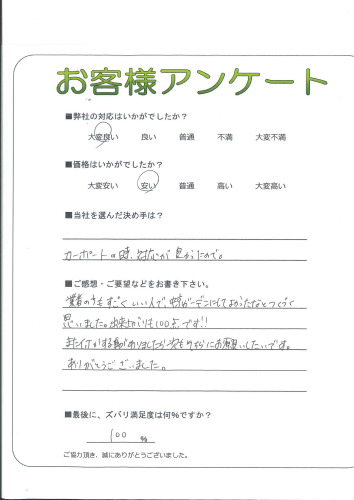 お客様アンケート
■弊社の対応はいかがでしたか？
大変良い 良い 普通 不満 大変不満
■価格はいかがでしたか？
大変安い 安い 普通 高い 大変高い
■当社を選んだ決め手は？
カーポートの時、対応が良かったので。
■ご感想・ご要望などをお書き下さい。
業者の方もすごくいい人で、ガーデンにしてよかったなとつくづく
思いました。出来上がりも100点です!!
またする事がありましたら次もそちらにお願いしたいです。
ありがとうございました。
■最後に、ズバリ満足度は何%ですか？
100 %
ご協力頂き、誠にありがとうございました。